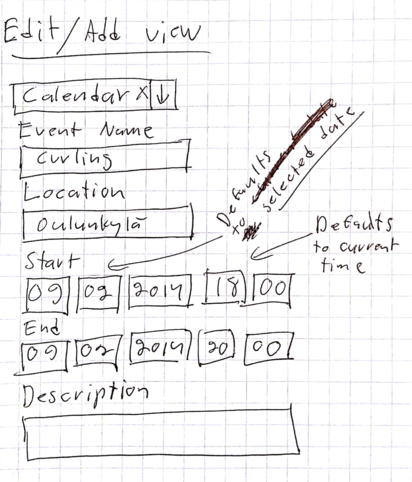 Edit/Add view
Calendar X ↓
Event Name
Curling
Location
Oulunkylä
Defaults
to selected date
Start
Defaults
to current
time
09 02 2014 18 00
End
09 02 2014 20 00
Description